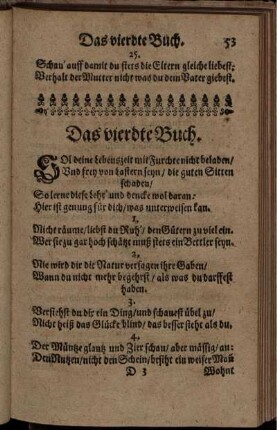 Das vierdte Buch. 53
25.
Schau' auff damit du stets die Eltern gleiche liebest:
Verhalt der Mutter nicht was du dem Vater giebest.
Das vierdte Buch.
SOl deine Lebenszeit mit Furchte nicht beladen/
Vnd frey von Lastern seyn/ die guten Sitten
schaden/
So lerne diese Lehr' und dencke wol daran:
Hier ist genung für dich/ was unterweisen kan.
1,
Nicht räume/ liebst du Ruh'/ den Gütern zu viel ein.
Wer sie zu gar hoch schätzt muß stets ein Bettler seyn.
2,
Nie wird dir die Natur versagen ihre Gaben/
Wann du nicht mehr begehrst/ als was du darffest
haben.
3.
Versihst du dir ein Ding/ und schauest übel zu/
Nicht heiß das Glücke blind/ das besser sieht als du.
4.
Der Müntze glantz und Zier schau/ aber mässig/ an:
Den Nutzen/ nicht den Schein/ besiht ein weiser Mañ
D 3 Wohnt